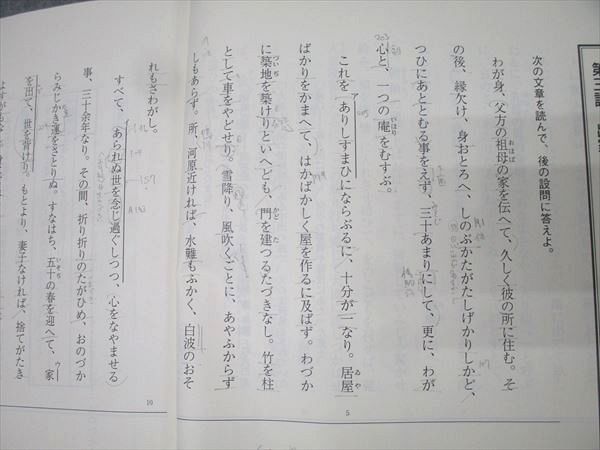 次の文章を読んで、後の設問に答えよ。
わが身、父方の祖母の家を伝へて、久しく彼の所に住む。そ
おほば
の後、縁欠け、身おとろへ、しのぶかたがたしげかりしかど、
つひにあととむる事をえず、三十あまりにして、更に、わが
心と、一つの庵をむすぶ。
いほり
これを ありしすまひにならぶるに、十分が一なり。居屋
ア
ゐや
ばかりをかまへて、はかばかしく屋を作るに及ばず。わづか
に築地を築けりといへども、門を建つるたづきなし。竹を柱
ついぢ
かど
として車をやどせり。雪降り、風吹くごとに、あやふからず
しもあらず。所、河原近ければ、水難もふかく、白波のおそ
れもさわがし。
すべて、あられぬ世を念じ過ぐしつつ、心をなやませる
事、三十余年なり。その間、折り折りのたがひめ、おのづか
らみじかき運をさとりぬ。すなはち、五十の春を迎へて、家
いそぢ
を出て、世を背けり。もとより、妻子なければ、捨てがたき
5
10